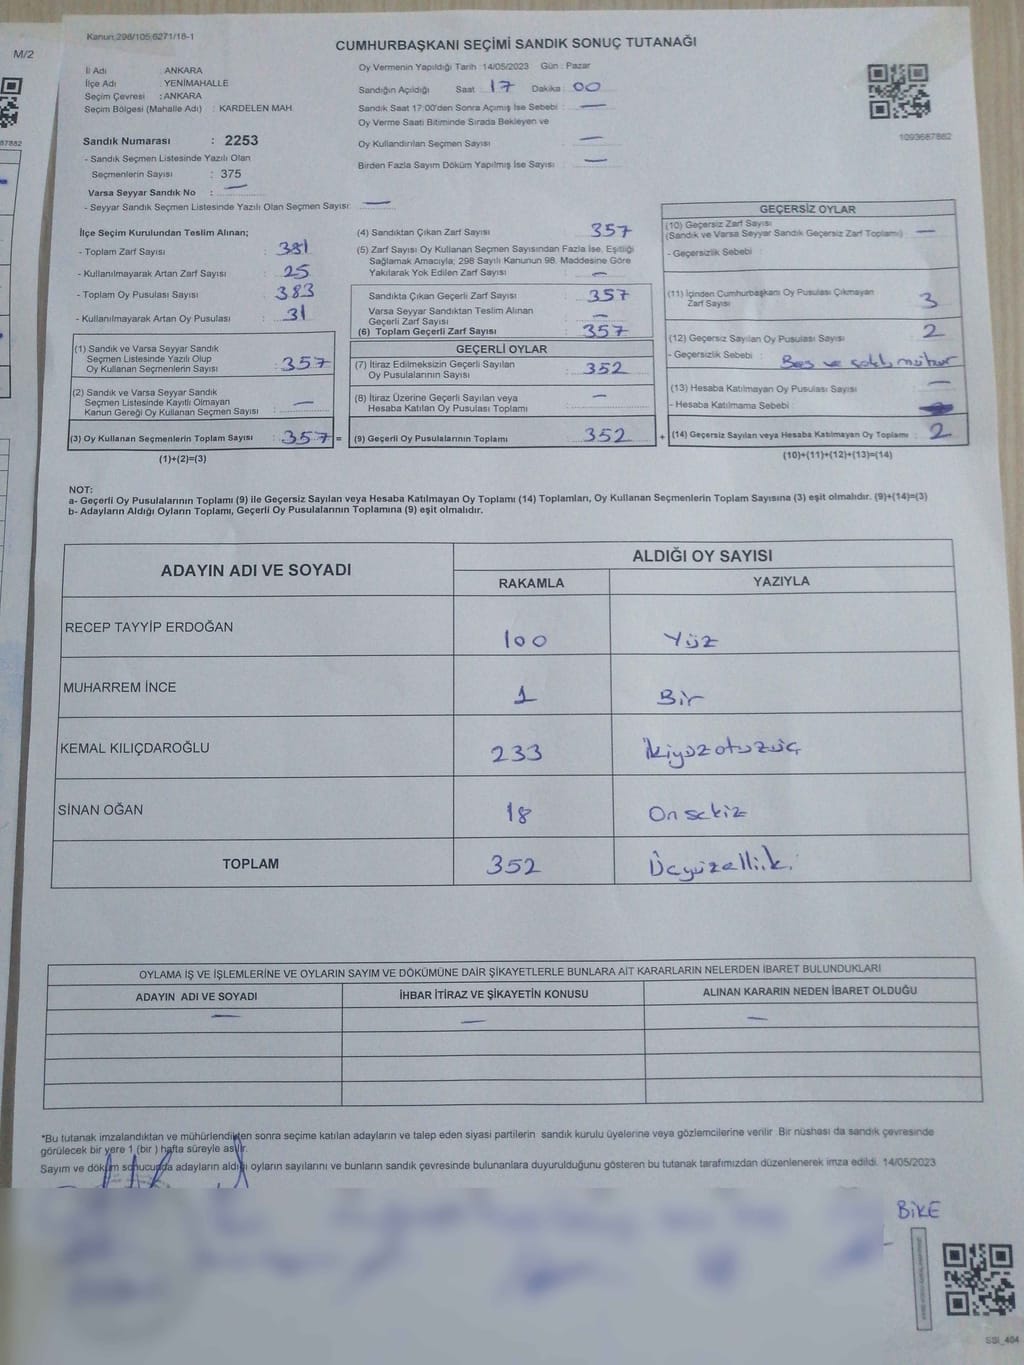 M/2
67882
Kanun:298/105;6271/18-1
CUMHURBAŞKANI SEÇİMİ SANDIK SONUÇ TUTANAĞI
İl Adı : ANKARA
İlçe Adı : YENİMAHALLE
Seçim Çevresi : ANKARA
Seçim Bölgesi (Mahalle Adı) : KARDELEN MAH.
Sandık Numarası : 2253
- Sandık Seçmen Listesinde Yazılı Olan
Seçmenlerin Sayısı : 375
Varsa Seyyar Sandık No : —
- Seyyar Sandık Seçmen Listesinde Yazılı Olan Seçmen Sayısı: —
Oy Vermenin Yapıldığı Tarih :14/05/2023 Gün : Pazar
Sandığın Açıldığı Saat 17 Dakika : 00
Sandık Saat 17:00'den Sonra Açımış İse Sebebi : —
Oy Verme Saati Bitiminde Sırada Bekleyen ve
Oy Kullandırılan Seçmen Sayısı : —
Birden Fazla Sayım Döküm Yapılmış İse Sayısı : —
1093667882
İlçe Seçim Kurulundan Teslim Alınan;
- Toplam Zarf Sayısı : 381
- Kullanılmayarak Artan Zarf Sayısı : 25
- Toplam Oy Pusulası Sayısı : 383
- Kullanılmayarak Artan Oy Pusulası : 31
(1) Sandık ve Varsa Seyyar Sandık
Seçmen Listesinde Yazılı Olup
Oy Kullanan Seçmenlerin Sayısı : 357
(2) Sandık ve Varsa Seyyar Sandık
Seçmen Listesinde Kayıtlı Olmayan
Kanun Gereği Oy Kullanan Seçmen Sayısı : —
(3) Oy Kullanan Seçmenlerin Toplam Sayısı : 357 =
(1)+(2)=(3)
(4) Sandıktan Çıkan Zarf Sayısı : 357
(5) Zarf Sayısı Oy Kullanan Seçmen Sayısından Fazla İse, Eşitliği
Sağlamak Amacıyla; 298 Sayılı Kanunun 98. Maddesine Göre
Yakılarak Yok Edilen Zarf Sayısı : —
Sandıkta Çıkan Geçerli Zarf Sayısı : 357
Varsa Seyyar Sandıktan Teslim Alınan
Geçerli Zarf Sayısı : —
(6) Toplam Geçerli Zarf Sayısı : 357
GEÇERLİ OYLAR
(7) İtiraz Edilmeksizin Geçerli Sayılan
Oy Pusulalarının Sayısı : 352
(8) İtiraz Üzerine Geçerli Sayılan veya
Hesaba Katılan Oy Pusulası Toplamı : —
(9) Geçerli Oy Pusulalarının Toplamı : 352 +
GEÇERSİZ OYLAR
(10) Geçersiz Zarf Sayısı
(Sandık ve Varsa Seyyar Sandık Geçersiz Zarf Toplamı) : —
- Geçersizlik Sebebi :
(11) İçinden Cumhurbaşkanı Oy Pusulası Çıkmayan
Zarf Sayısı : 3
(12) Geçersiz Sayılan Oy Pusulası Sayısı : 2
- Geçersizlik Sebebi : Boş ve çoklu mühür
(13) Hesaba Katılmayan Oy Pusulası Sayısı : —
- Hesaba Katılmama Sebebi :
(14) Geçersiz Sayılan veya Hesaba Katılmayan Oy Toplamı : 2
(10)+(11)+(12)+(13)=(14)
NOT:
a- Geçerli Oy Pusulalarının Toplamı (9) ile Geçersiz Sayılan veya Hesaba Katılmayan Oy Toplamı (14) Toplamları, Oy Kullanan Seçmenlerin Toplam Sayısına (3) eşit olmalıdır. (9)+(14)=(3)
b- Adayların Aldığı Oyların Toplamı, Geçerli Oy Pusulalarının Toplamına (9) eşit olmalıdır.
ADAYIN ADI VE SOYADI ALDIĞI OY SAYISI
RAKAMLA YAZIYLA
RECEP TAYYİP ERDOĞAN 100 Yüz
MUHARREM İNCE 1 Bir
KEMAL KILIÇDAROĞLU 233 İkiyüzotuzüç
SİNAN OĞAN 18 Onsekiz
TOPLAM 352 Üçyüzelliiki
OYLAMA İŞ VE İŞLEMLERİNE VE OYLARIN SAYIM VE DÖKÜMÜNE DAİR ŞİKAYETLERLE BUNLARA AİT KARARLARIN NELERDEN İBARET BULUNDUKLARI
ADAYIN ADI VE SOYADI İHBAR İTİRAZ VE ŞİKAYETİN KONUSU ALINAN KARARIN NEDEN İBARET OLDUĞU
— — —
*Bu tutanak imzalandıktan ve mühürlendikten sonra seçime katılan adayların ve talep eden siyasi partilerin sandık kurulu üyelerine veya gözlemcilerine verilir. Bir nüshası da sandık çevresinde
görülecek bir yere 1 (bir ) hafta süreyle asılır.
Sayım ve döküm sonucunda adayların aldığı oyların sayılarını ve bunların sandık çevresinde bulunanlara duyurulduğunu gösteren bu tutanak tarafımızdan düzenlenerek imza edildi. 14/05/2023
BİKE
SSI_404